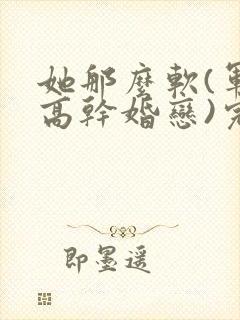 她那麼軟(軍
高幹婚戀)完
即墨遥